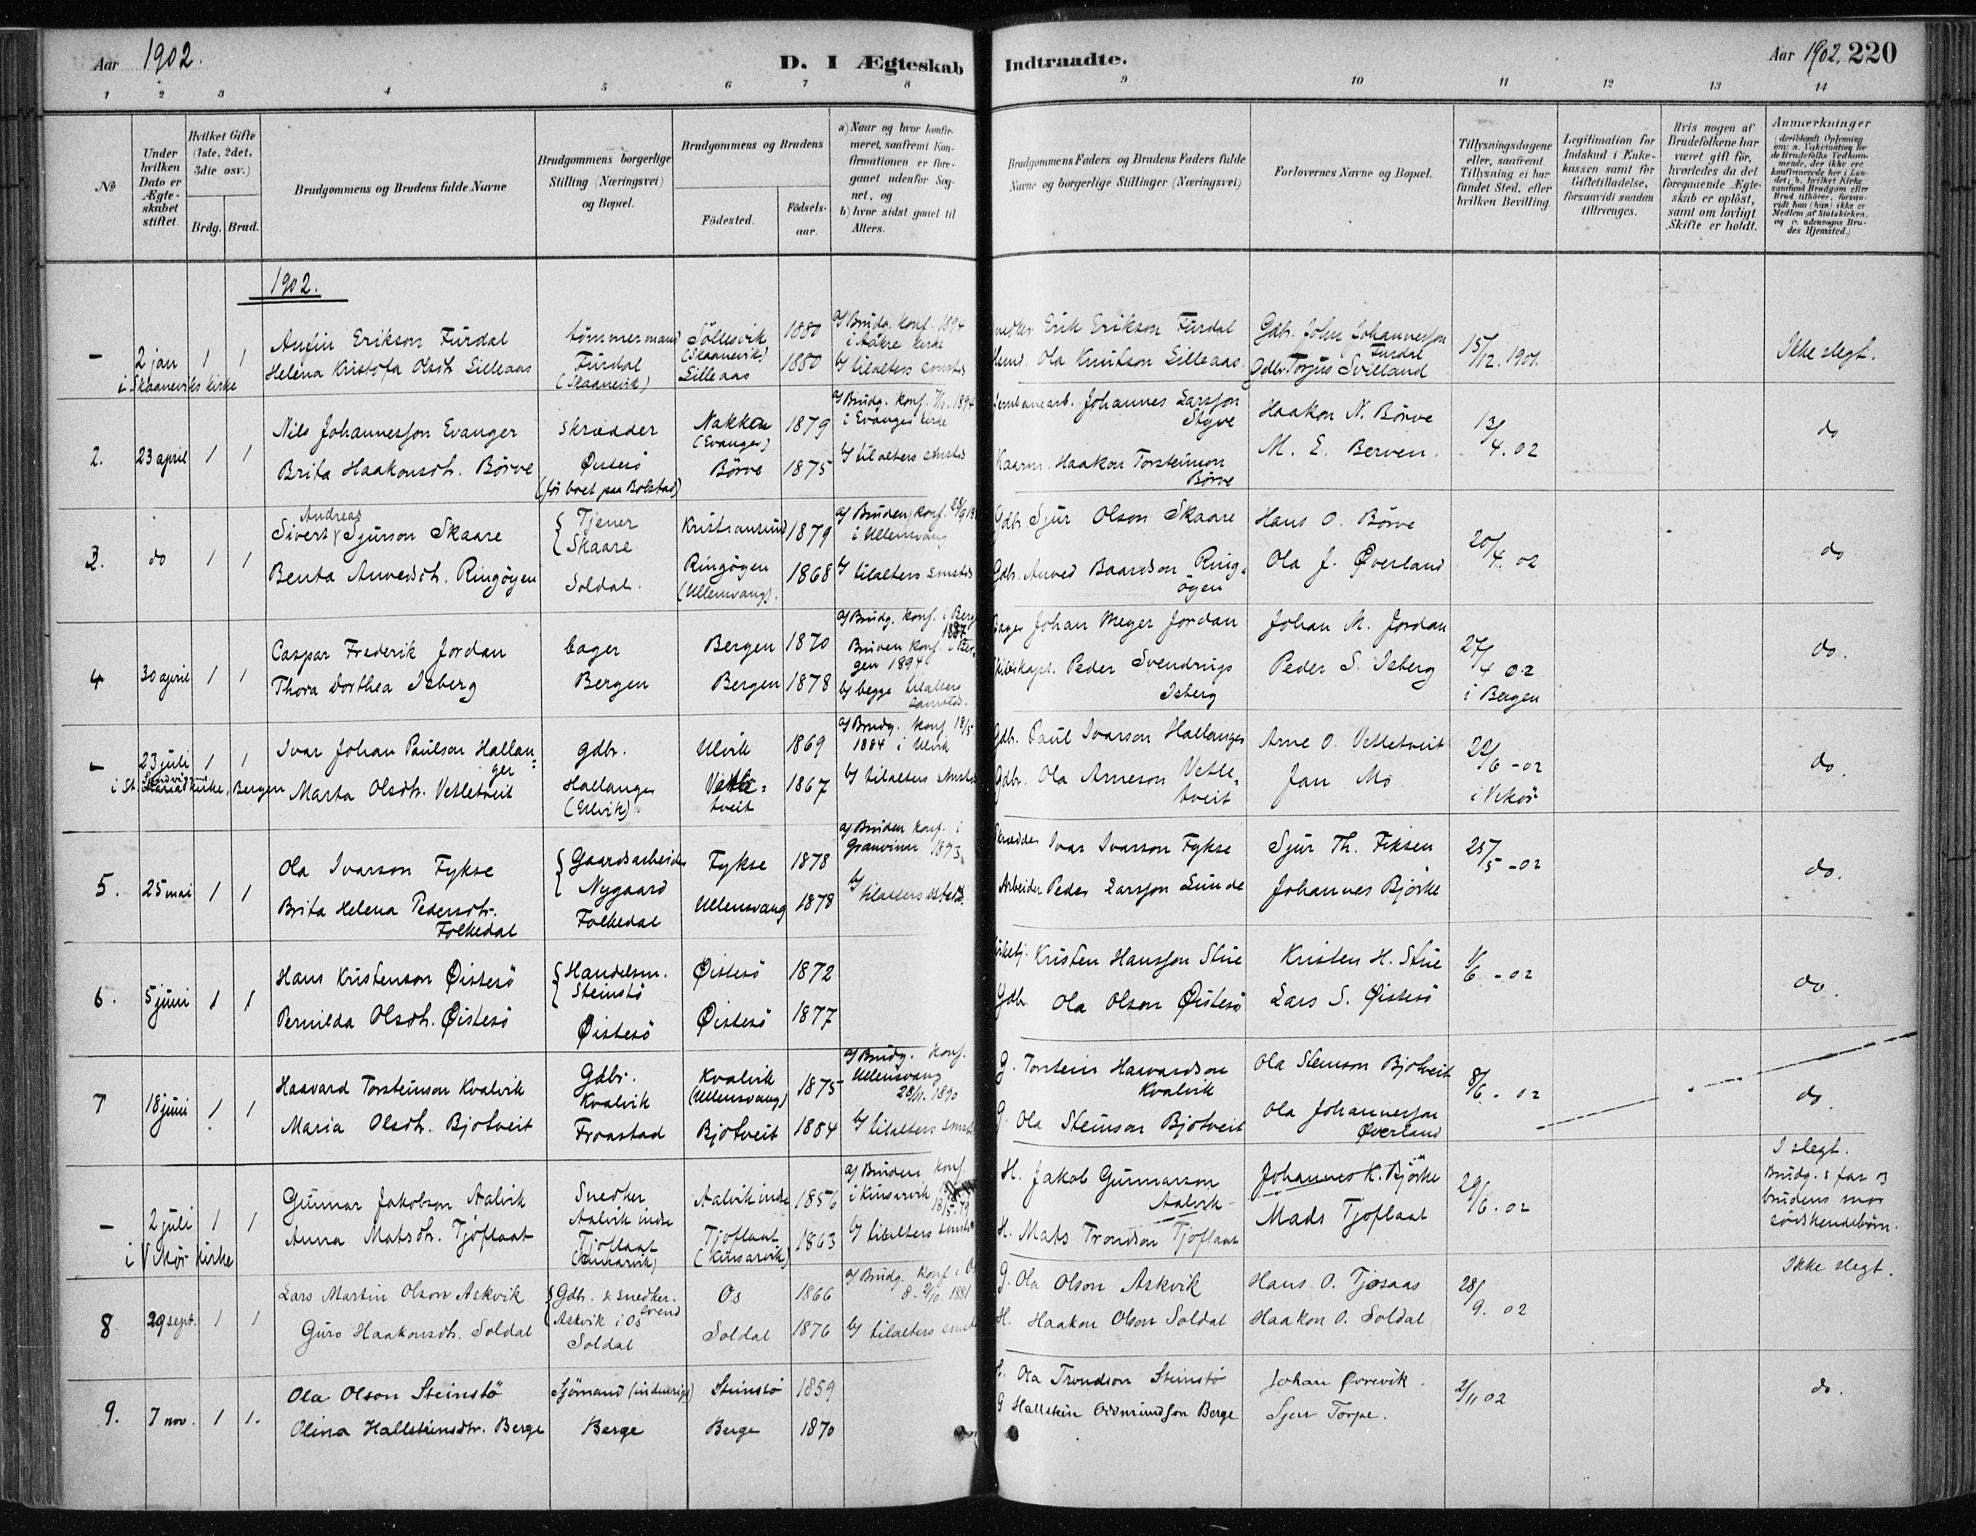 Aar 1902.
D. I Ægteskab Indtraadte.
Aar 1902. 220
1 2 3 4 5 6 7 8 9 10 11 12 13 14
№
Under hvilken Dato er Ægteskabet stiftet.
Hvilket Gifte (1ste, 2det, 3die osv.)
Brdg. Brud.
Brudgommens og Brudens fulde Navne
Brudgommens borgerlige Stilling (Næringsvei) og Bopæl.
Brudgommens og Brudens
Födested.
Födselsaar.
a) Naar og hvor konfirmeret, saafremt Konfirmationen er foregaaet udenfor Sognet, og
b) hvor sidst gaaet til Alters.
Brudgommens Faders og Brudens Faders fulde Navne og borgerlige Stillinger (Næringsvei)
Forlovernes Navne og Bopæl.
Tillysningsdagene eller, saafremt Tillysning ei har fundet Sted, efter hvilken Bevilling.
Legitimation for Indskud i Enkekassen samt for Giftetilladelse, forsaavidt saadan tiltrænges.
Hvis nogen af Brudefolkene har været gift før, hvorledes da det foregaaende Ægteskab er opløst, samt om lovligt Skifte er holdt.
Anmærkninger
1902.
– 2 jan 1 1
i Skaaneviks kirke
Helena Kristofa Olsdt. Lilleaas
tømmermand
Furdal
(Skaanevik)
(Skaanevik)
Lilleaas
1880
1880
a) Brudg. konf. 1894
i Åkre kirke
b) tilalters smsts
Erik Erikson Furdal
Ola Knutson Lilleaas
Gdbr. John Johannesson
Furdal
Gdbr Torjus Svilland
15/12. 1901.
Ikke slegt.
2. 23 april 1 1
Nils Johannesson Evanger
Brita Haakonsdt. Børve
skrædder
Øistesö
(før boet paa Bolstad)
Nakken
(Evanger)
Børve
1879
1875
i Evanger kirke
b) tilalters smsts
Johannes Larsson
Styve
Haakon Torsteinson
Børve
Haakon N. Børve
M. E. Berven.
13/4. 02
do
3. do 1 1
Andreas
Sivert Sjurson Skaare
Benta Anvedsdt. Ringøyen
Tjener
Skaare
Soldal.
Kristiansund
Ringöyen
(Ullensvang).
1879
1868
i Ullensvang
b) tilalters smsts
Gdb. Sjur Olson Skaare
Gdb. Anved Baardson Ring-
öyen
Hans O. Børve
Ola J. Øverland
20/4. 02
do
4 30 april 1 1
Caspar Frederik Jordan
Thora Dorthea Isberg
bager
Bergen
Bergen
Bergen
1870
1878
gen 1894
b) begge tilalters
Johan Meyer Jordan
Peder Svendrup
Isberg
Johan M. Jordan
Peder S. Isberg
27/4 02
i Bergen
do.
– 23 juli 1 1
kirke, Bergen
Ivar Johan Paulson Hallan-
ger
Marta Olsdt. Vetletveit
gdbr.
Hallanger
(Ulvik).
Ulvik
Vetle-
tveit
1869
1867
a) Brudg. konf. 18/5
1884 i Ulvik
b) tilalters smsts
Gdb. Paul Ivarson Hallanger
Gdb. Ola Arneson Vetle-
tveit
Arne O. Vetletveit
Jan Mo
22/6 - 02
i Vikør
do.
5. 25 mai 1 1
Ola Ivarson Fykse
Brita Helena Pedersdtr.
Folkedal
Gaardsarbeider
Nygaard
Folkedal
Fykse
Ullensvang
1878
1878
a) Bruden konf. i
Granvinn 1893.
b) tilalters
Skrædder Ivar Ivarson Fykse
Arbeider Peder Larsson Lunde
Sjur Th. Fiksen
Johannes Bjørke
25/5 - 02
do.
6. 5 juni 1 1
Hans Kristenson Øistesö
Pernilda Olsdt. Øistesö
Handelsm.
Steinstö
Øistesö
Øistesö
Øistesö
1872
1877
Kristen Hansson Stue
Gdb. Ola Olson Øistesö
Kristen H. Stue
Lars S. Øistesö
1/6 - 02
do.
7 18 juni 1 1
Haavard Torsteinson Kvalvik
Maria Olsdt. Bjotveit
Gdbr.
Kvalvik
Froastad
Kvalvik
(Ullensvang)
Bjotveit
1875
1884
a) Brudg. konf.
Ullensvang
28/11. 1890
b) tilalters smsts
G. Torstein Haavardson
Kvalvik
G. Ola Steinson Bjotveit
Ola Steinson Bjotveit
Ola Johannesson
Øverland
8/6. - 02
do.
– 2 juli 1 1
i Vikør kirke
Gunnar Jakobson Aalvik
Anna Matsdt. Tjoflaat
Snedker
Aalvik indre
Tjoflaat
(Kinsarvik)
Aalvik indre
Tjoflaat
(Kinsarvik)
1856
1863
a) Bruden konf.
i Kinsarvik
b) tilalters smsts
H. Jakob Gunnarson
Aalvik
H. Mats Trondson Tjoflaat
Johannes K. Bjørke
Mads Tjoflaat
29/6. 02
I slegt.
Brudg.s far og
brudens mor
södskendebørn.
8 29 sept. 1 1
Lars Martin Olson Askvik
Guro Haakonsdt. Soldal
Gdbr. & snedker-
svend
Askvik i Os
Soldal
Os
Soldal
1866
1876
a) Brudg. konf. i Os
b) tilalters smsts
G. Ola Olson Askvik
H. Haakon Olson Soldal
Hans O. Tjosaas
Haakon O. Soldal
28/9. 02
Ikke slegt.
9. 7 nov. 1 1.
Ola Olson Steinstö
Olina Hallsteinsdtr. Berge
Sjömand (indenrigs)
Berge
Steinstö
Berge
1859
1870
Ola Trondson Steinstö
G Hallstein Oddmundson Berge
Johan Øvrevik.
Sjur Torpe.
2/11 02
do.